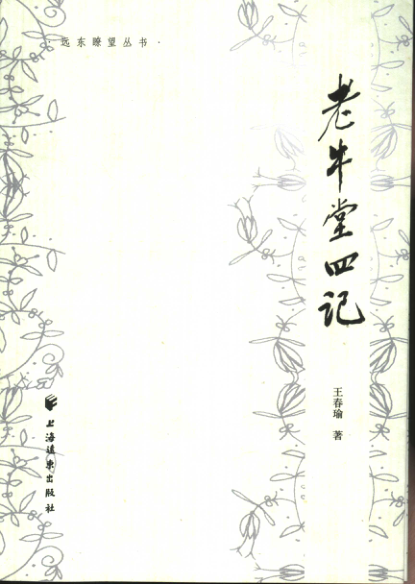 ·远东瞭望丛书·
老牛堂四记
王春瑜 著
上海远东出版社